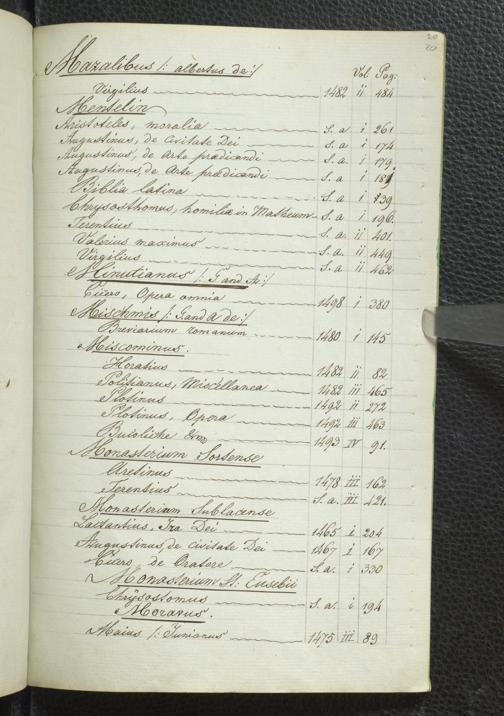 20
20
Mazalibus /: albertus de :/ Vol Pag:
Virgilius 1482 ii 484
Mentelin
Aristoteles, moralia s. a i 261
Augustinus, de Civitate Dei s. a i 174
Augustinus, de Arte prædicandi s. a i 179
Augustinus, de Arte prædicandi s. a i 181
Biblia latina s. a i 139
Chrysosthomus, homiliæ in Matheum s. a i 196
Terentius s. a. ii 401.
Valerius maximus s. a. ii 449
Virgilius s. a ii 462
Minutianus /: G and A :/
Cicero, Opera omnia 1498 i 380
Mischinis /: G and A de :/
Breviarium romanum 1480 i 145
Miscominus.
Horatius 1482 ii 82
Politianus, Miscellanea 1482 iii 465
Plotinus 1492 ii 272
Plotinus, Opera 1492 iii 463
Bucoliche 1493 IV 91.
Monasterium Sortense
Aretinus 1478 iii 162
Terentius s. a. iii 421.
Monasterium Sublacense
Lactantius, Ira Dei 1465 i 204
Augustinus, de civitate Dei 1467 i 167
Cicero, de Oratore s. a. i 330
Monasterium St. Eusebii
Chrÿsostomus s. a. i 194
Moravus.
Maius /: Junianus 1475 iii 89